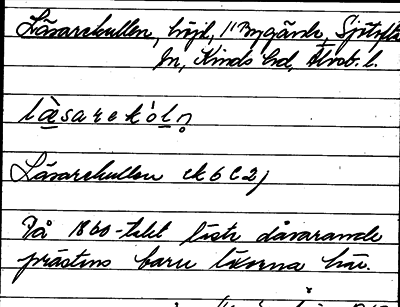 Läsarekullen, höjd, 1/1 Bygärde, Sjötofta
sn, Kinds hd, Älvsb. l.
læ̀sarekól̥n̥
Läsarekullen (k 6 C 2)
På 1860-talet läste dåvarande
prästens barn läxorna här.